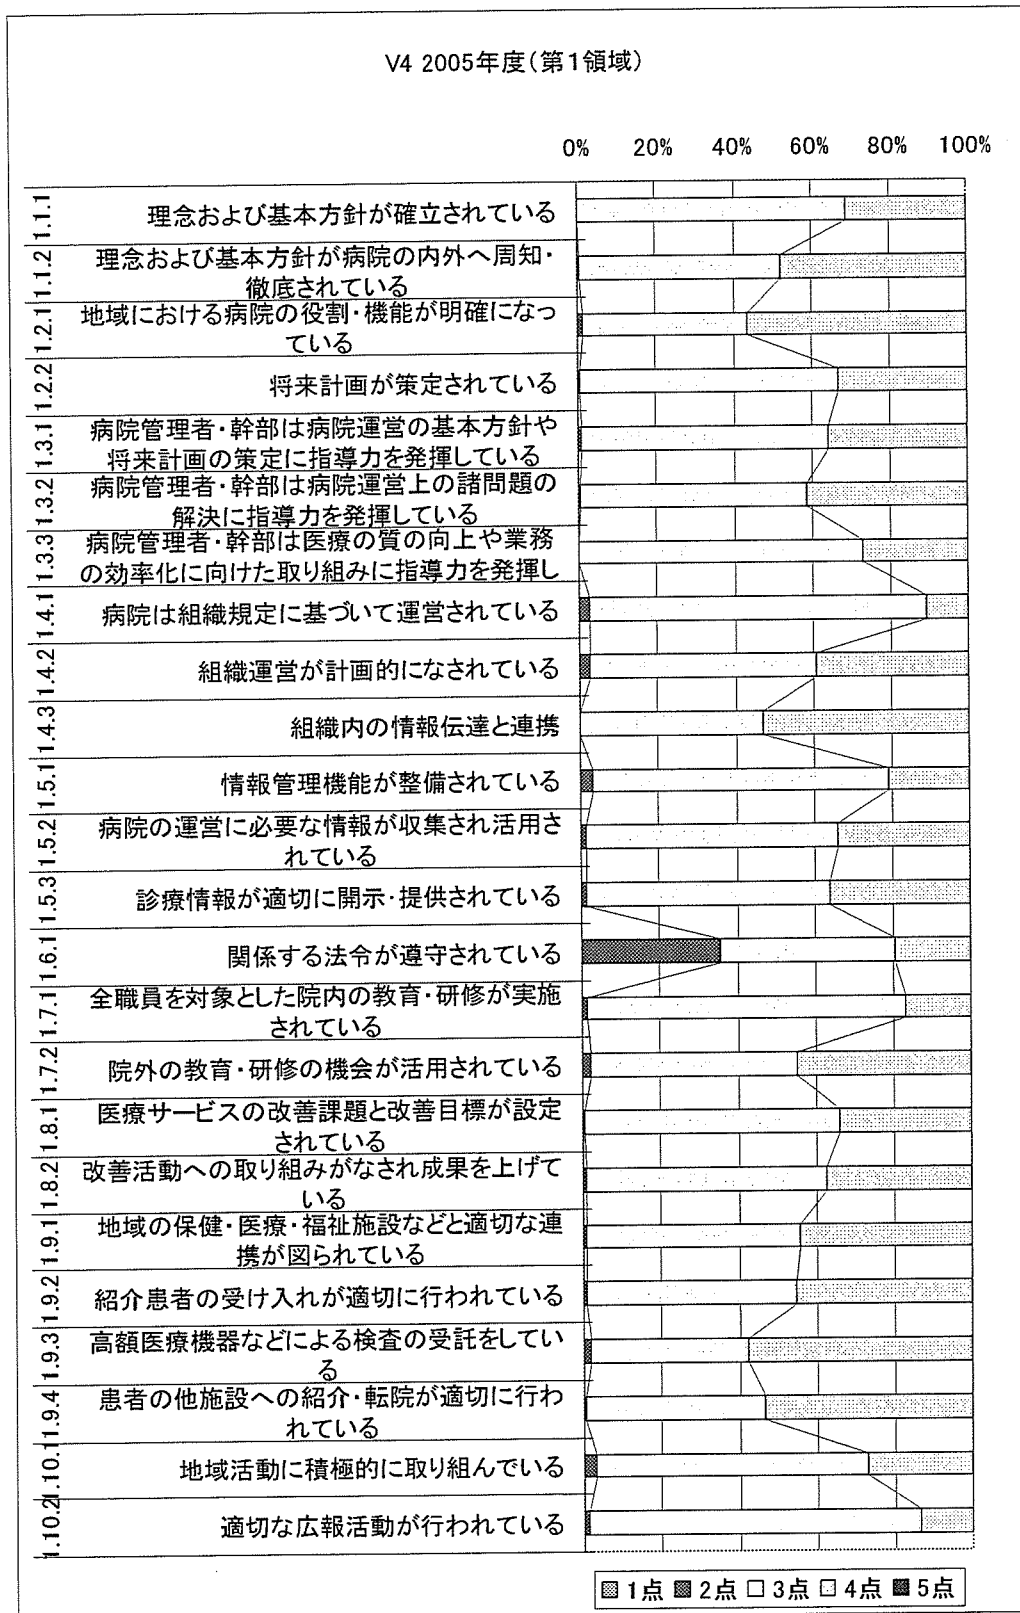 V4 2005年度(第1領域)
0% 20% 40% 60% 80% 100%
1.1.1 理念および基本方針が確立されている
1.1.2 理念および基本方針が病院の内外へ周知・
徹底されている
1.2.1 地域における病院の役割・機能が明確になっ
ている
1.2.2 将来計画が策定されている
1.3.1 病院管理者・幹部は病院運営の基本方針や
将来計画の策定に指導力を発揮している
1.3.2 病院管理者・幹部は病院運営上の諸問題の
解決に指導力を発揮している
1.3.3 病院管理者・幹部は医療の質の向上や業務
の効率化に向けた取り組みに指導力を発揮し
1.4.1 病院は組織規定に基づいて運営されている
1.4.2 組織運営が計画的になされている
1.4.3 組織内の情報伝達と連携
1.5.1 情報管理機能が整備されている
1.5.2 病院の運営に必要な情報が収集され活用さ
れている
1.5.3 診療情報が適切に開示・提供されている
1.6.1 関係する法令が遵守されている
1.7.1 全職員を対象とした院内の教育・研修が実施
されている
1.7.2 院外の教育・研修の機会が活用されている
1.8.1 医療サービスの改善課題と改善目標が設定
されている
1.8.2 改善活動への取り組みがなされ成果を上げて
いる
1.9.1 地域の保健・医療・福祉施設などと適切な連
携が図られている
1.9.2 紹介患者の受け入れが適切に行われている
1.9.3 高額医療機器などによる検査の受託をしてい
る
1.9.4 患者の他施設への紹介・転院が適切に行わ
れている
1.10.1 地域活動に積極的に取り組んでいる
1.10.2 適切な広報活動が行われている
1点 2点 3点 4点 5点